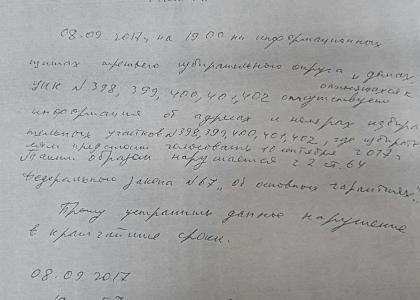 08.09 2017г на 19 00 на информационных
щитах третьего избирательного округа, домах
относящихся к
УИК N 398, 399, 400, 401, 402 отсутствует
информация об адресах и номерах избира
тельных участков N 398, 399, 400, 401, 402, где избирате
лям предстоит голосовать 10 сентября 2017г.
Таким образом нарушается ч 2 ст. 64
Федерального закона N 67 „Об основных гарантиях"..
Прошу устранить данное нарушение
в кратчайшие сроки.
08.09 2017